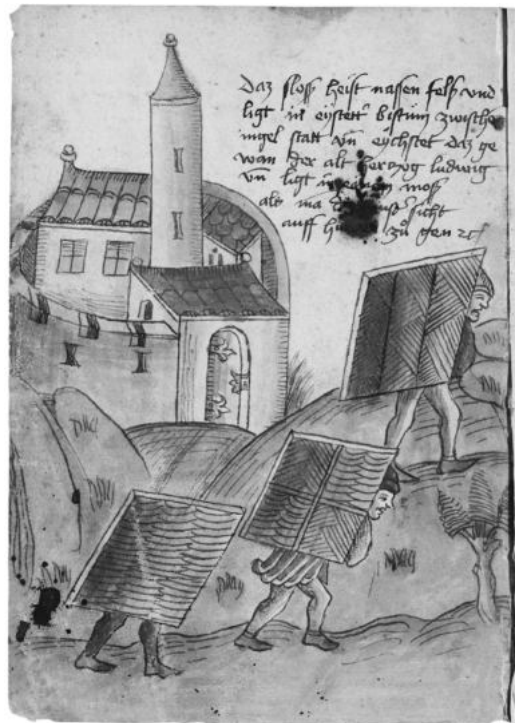 Daz sloss heist nassen felß vnd
ligt in eystett bistum zwische
ingel statt vn̄ eychstet daz ge
wan der alt herczog ludwig
vn̄ ligt in mosß
als ma sicht
auff h zu gen